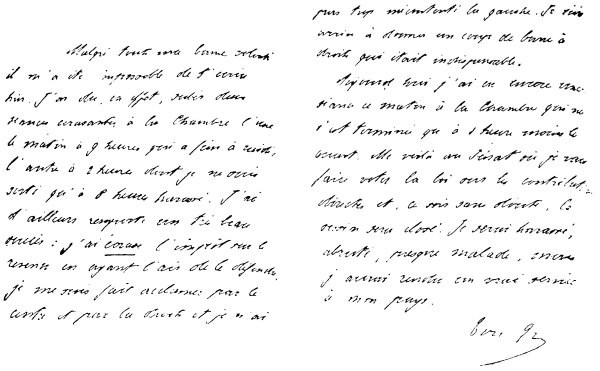 Malgré toute ma bonne volonté
il m'a été impossible de t'écrire
hier. J'ai dû, en effet, subir deux
séances écrasantes à la Chambre l'une
le matin à 9 heures qui a fini à midi,
l'autre à 2 heures dont je ne suis
sorti qu'à 8 heures harassé. J'ai
d'ailleurs remporté un très beau
succès : j'ai écrasé l'impôt sur le
revenu en ayant l'air de le défendre,
je me suis fait acclamer par le
centre et par la droite et je n'ai
pas trop mécontenté la gauche. Je suis
à donner un coup de barre à
droite qui était indispensable.
Aujourd'hui j'ai eu encore une
séance ce matin à la Chambre qui ne
s'est terminée qu'à 1 heure moins le
quart. Me voilà au Sénat où je vais
faire voter la loi sur les contributions
directes et, ce soir sans doute, la
session sera close. Je serai harassé,
abruti, presque malade, mais
j'aurai rendu un vrai service
à mon pays.
Ton